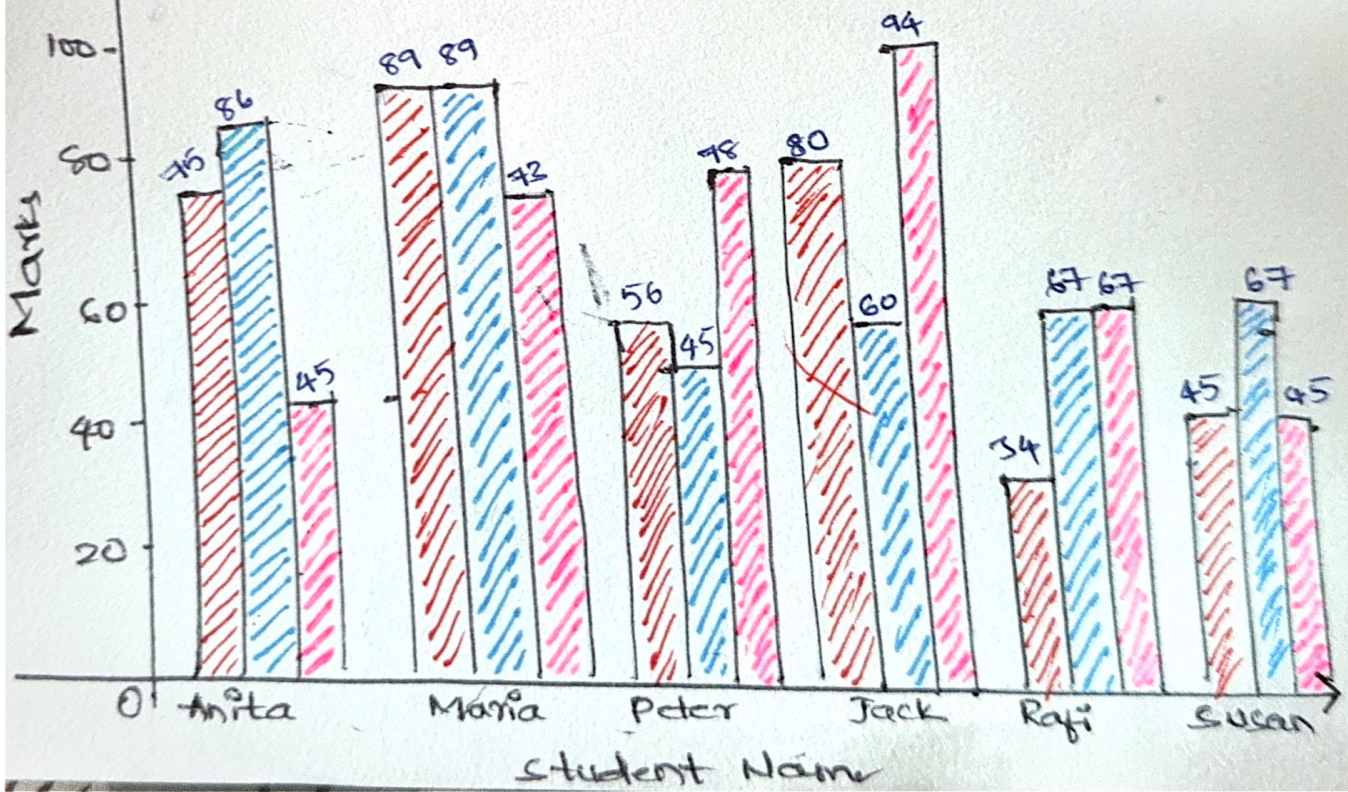 Marks
100
80
60
40
20
0
75
86
45
89 89
73
56
45
78
80
60
94
34
67 67
45
67
45
Anita Maria Peter Jack Rafi Susan
Student Name